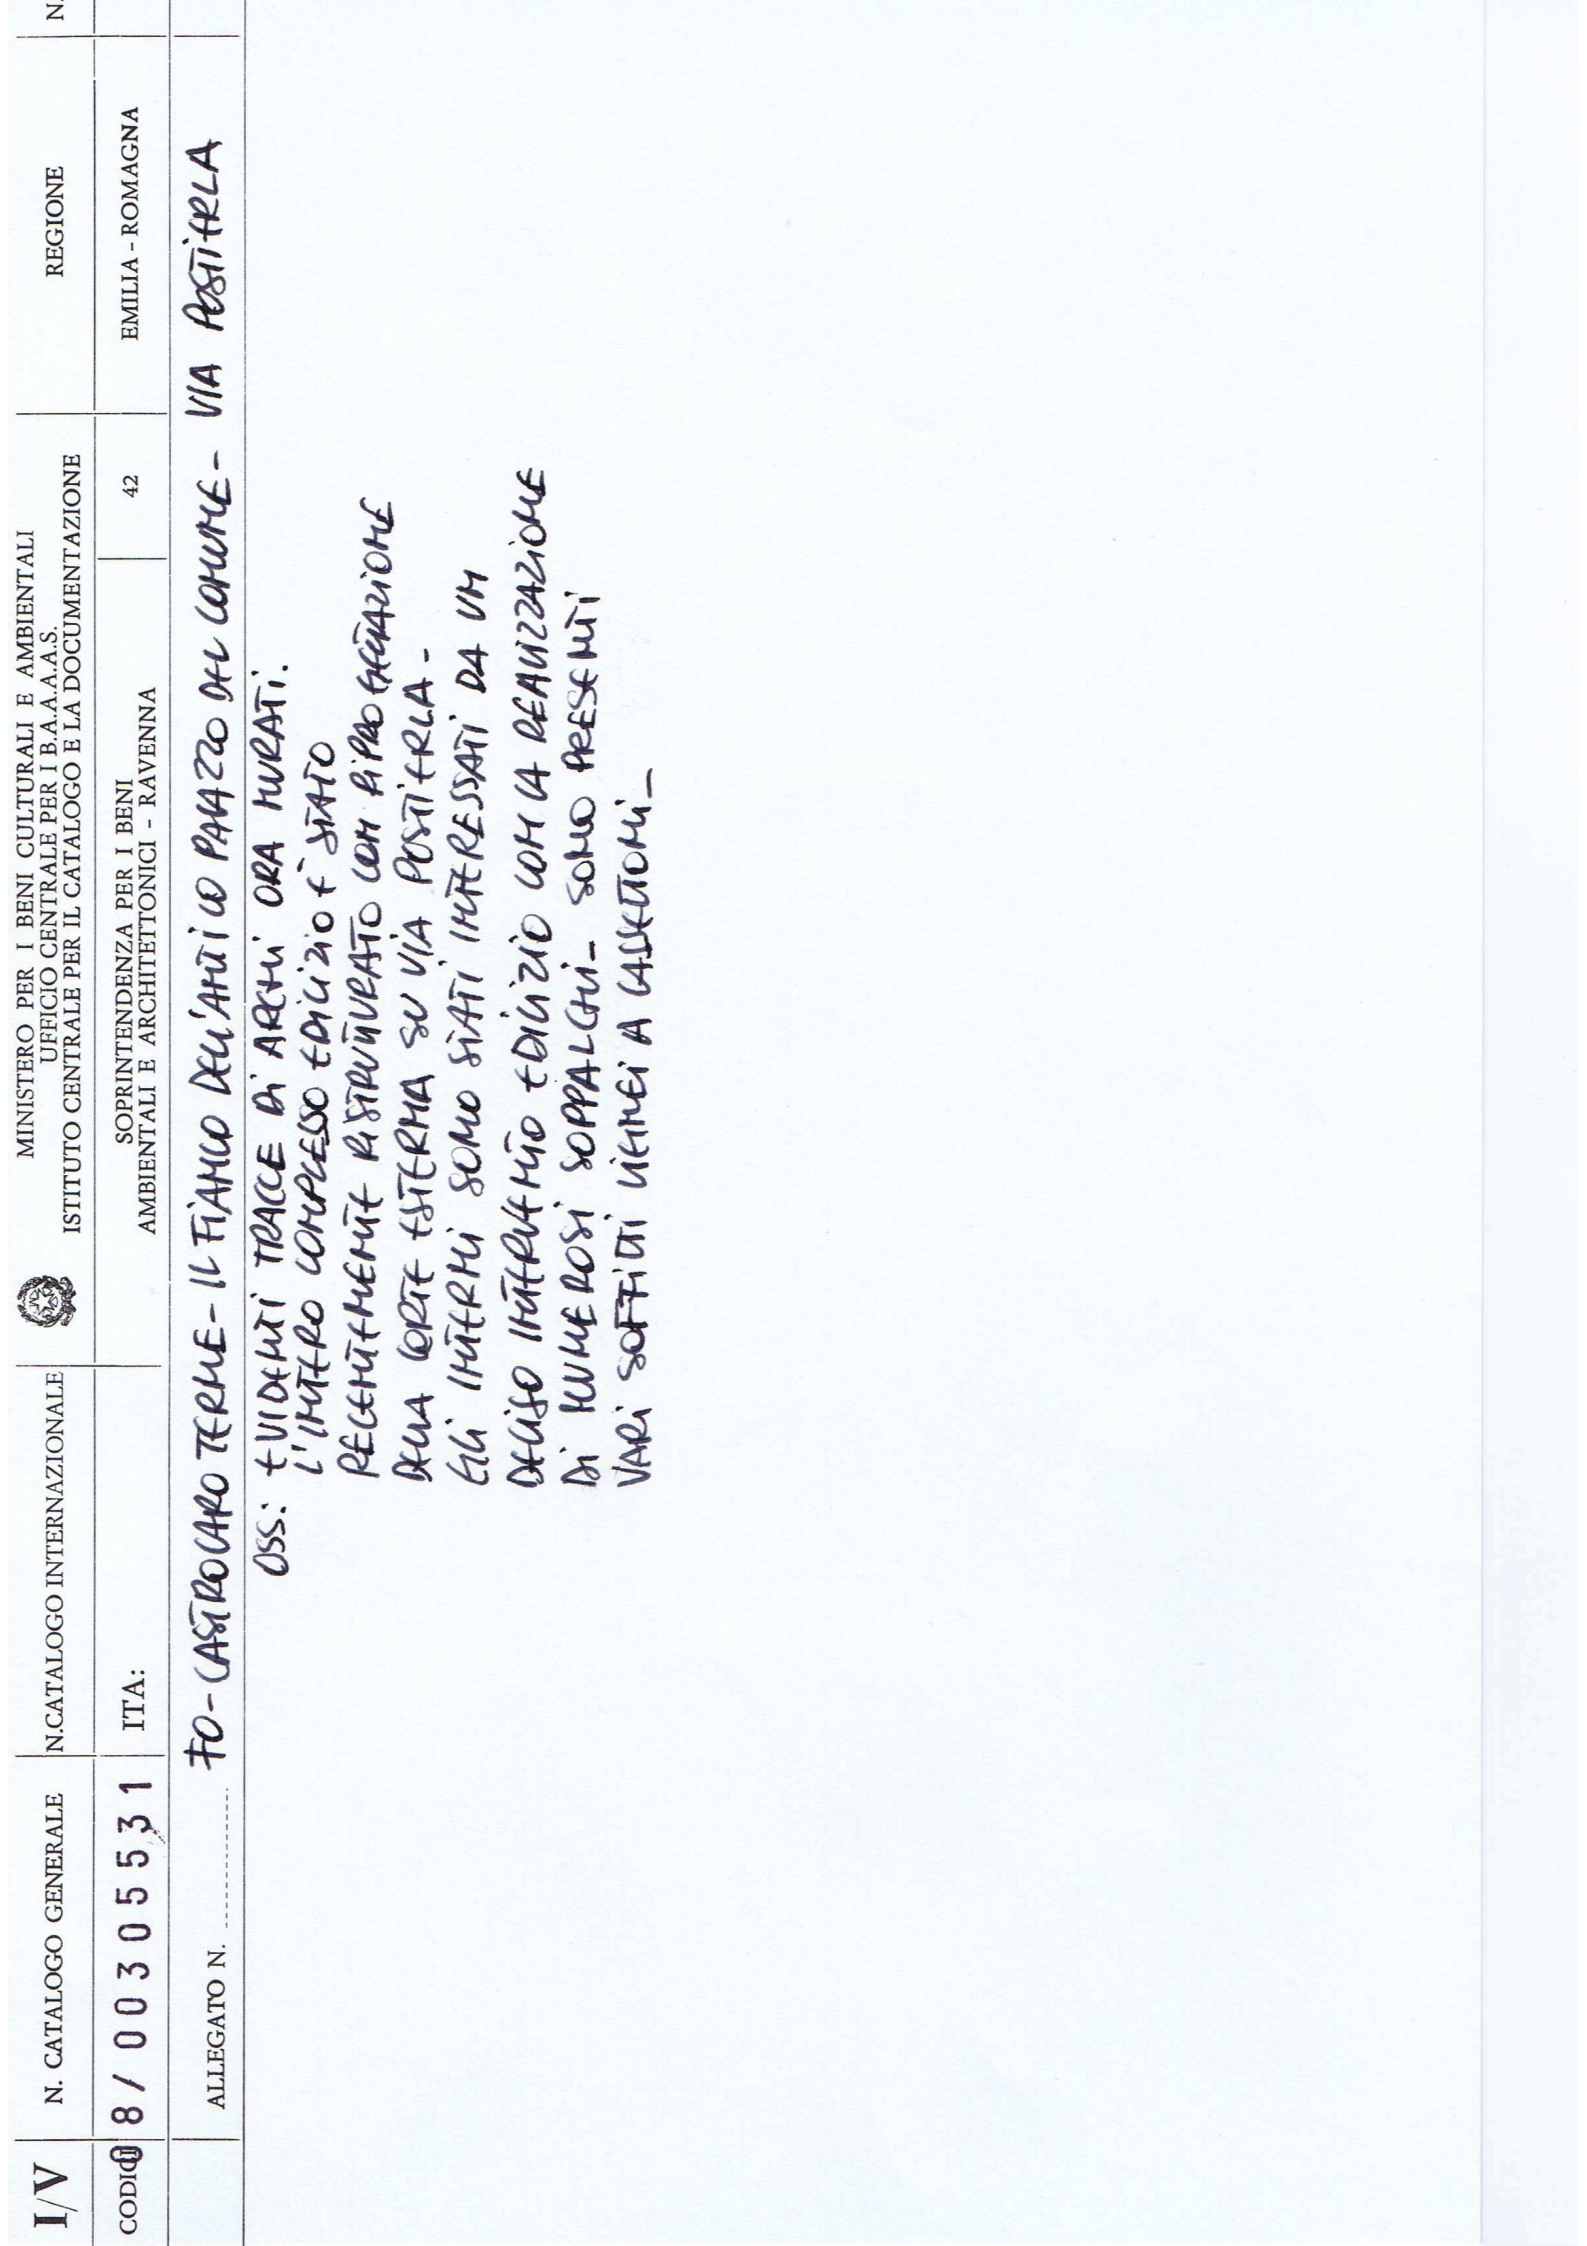 I/V
N. CATALOGO GENERALE
N.CATALOGO INTERNAZIONALE
MINISTERO PER I BENI CULTURALI E AMBIENTALI
UFFICIO CENTRALE PER I B.A.A.A.S.
ISTITUTO CENTRALE PER IL CATALOGO E LA DOCUMENTAZIONE
REGIONE
N.
CODICI
08/00305531
ITA:
SOPRINTENDENZA PER I BENI
AMBIENTALI E ARCHITETTONICI - RAVENNA
42
EMILIA - ROMAGNA
ALLEGATO N. FO - CASTROCARO TERME - IL FIANCO DELL'ANTICO PALAZZO DEL COMUNE - VIA POSTIERLA
OSS: EVIDENTI TRACCE DI ARCHI ORA MURATI.
L'INTERO COMPLESSO EDILIZIO È STATO
RECENTEMENTE RISTRUTTURATO CON RIPROGETTAZIONE
DELLA CORTE ESTERNA SU VIA POSTIERLA -
GLI INTERNI SONO STATI INTERESSATI DA UN
DECISO INTERVENTO EDILIZIO CON LA REALIZZAZIONE
DI NUMEROSI SOPPALCHI - SONO PRESENTI
VARI SOFFITTI LIGNEI A CASSETTONI -